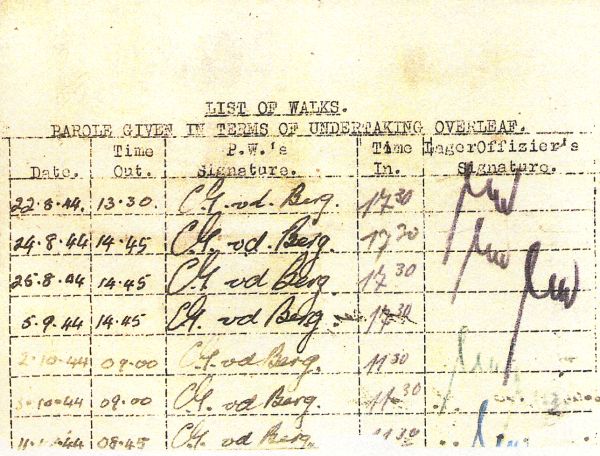 LIST OF WALKS.
PAROLE GIVEN IN TERMS OF UNDERTAKING OVERLEAF.
Time P.W.'s Time LagerOffizier's
Date. Out. Signature. In. Signature.
22.8.44. 13.30. C.G. vd. Berg. 17 30
24.8.44 14.45 C.G. vd. Berg. 17 30
25.8.44 14.45 C.G. vd Berg 17 30
5.9.44 14.45 C.G. vd Berg. 17.30
2.10.44 09.00 C.G. vd Berg. 11 30
10.44 09.00 C.G. vd Berg. 11.30
44 08.45 C.G. vd Berg. 11 30